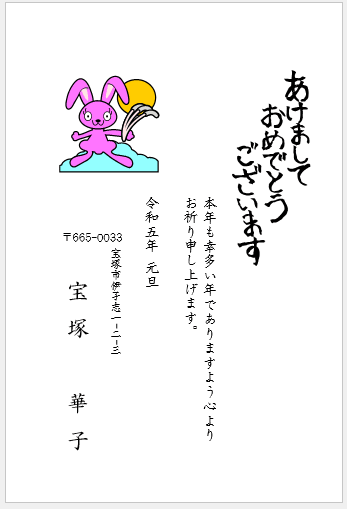 あけまして
おめでとう
ございます
本年も幸多い年でありますよう心より
お祈り申し上げます。
令和五年 元旦
〒665-0033
宝塚市伊孑志一-二-三
宝塚 華子